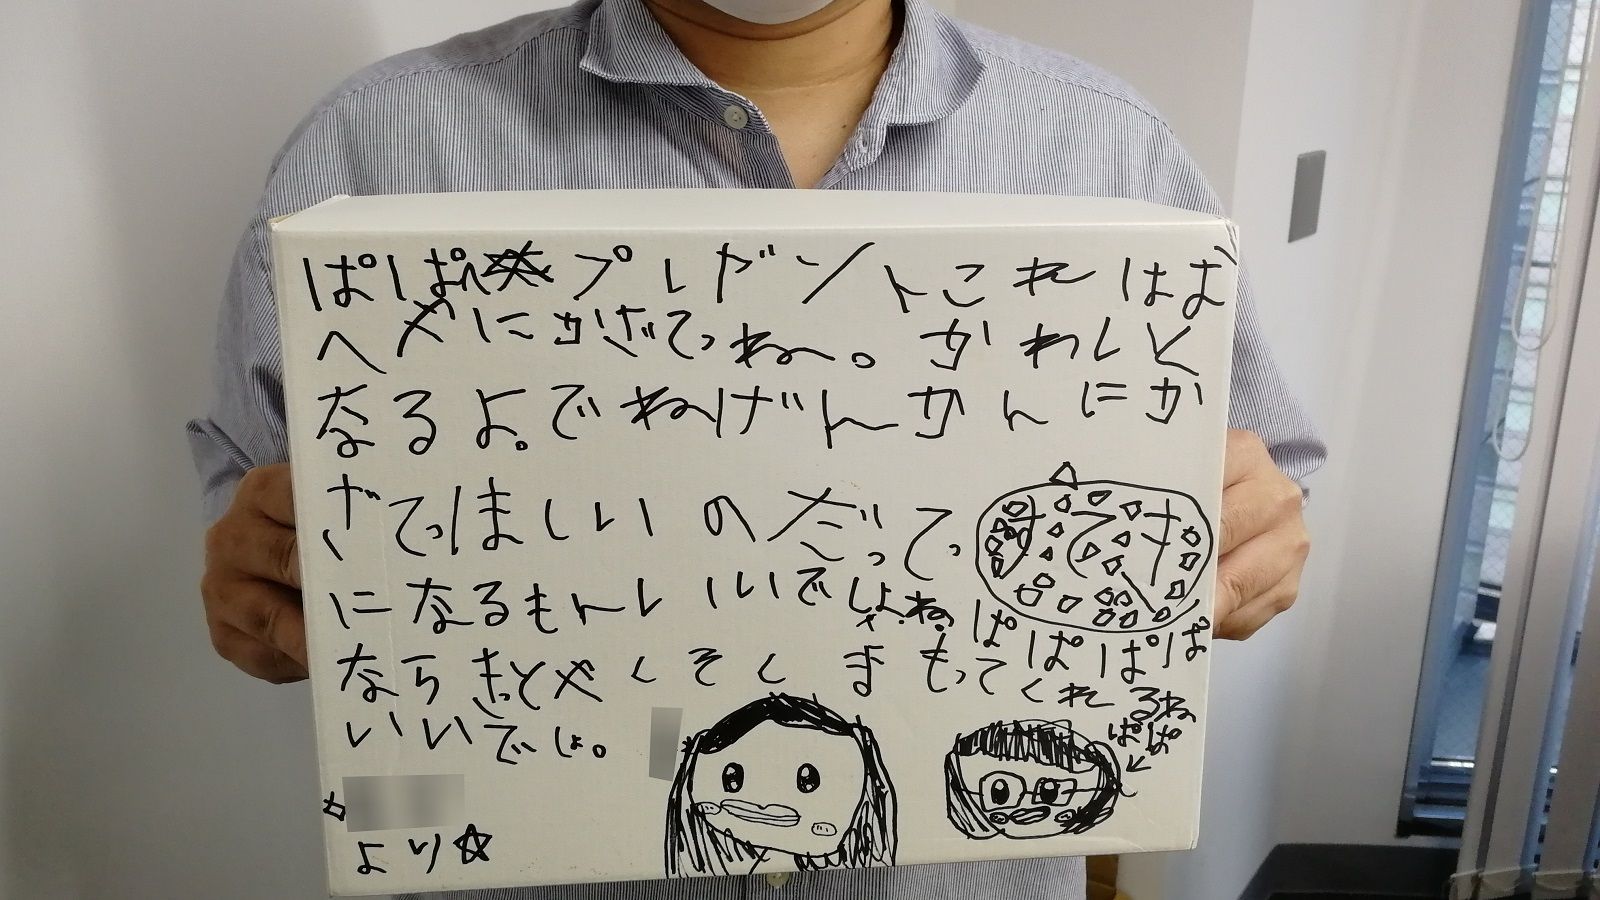 ぱぱへプレゼントこれはお
へやにかざてっね。かわいく
なるよ。でねげんかんにか
ざてっほしいのだってっ
すてき
になるもんいいでしょね。
ぱぱぱぱ
ならきっとやくそくまもって
くれるね
いいでしょ。
ぱぱ
より